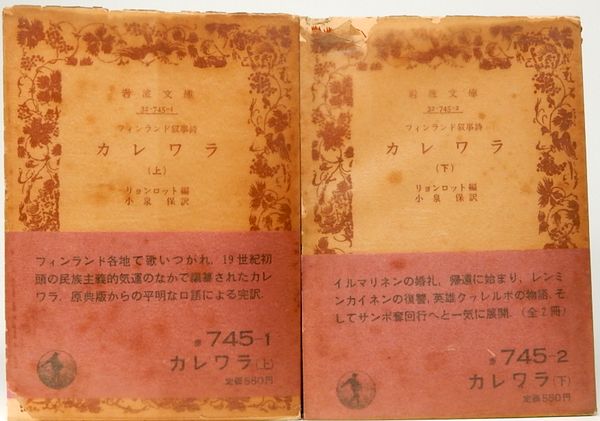 岩波文庫
32-745-1
フィンランド叙事詩
カレワラ
(上)
リョンロット編
小泉 保訳
フィンランド各地で歌いつがれ, 19世紀初
頭の民族主義的気運のなかで編纂されたカレ
ワラ. 原典版からの平明な口語による完訳.
赤 745-1
カレワラ(上)
定価550円
岩波文庫
32-745-2
フィンランド叙事詩
カレワラ
(下)
リョンロット編
小泉 保訳
イルマリネンの婚礼, 帰還に始まり, レンミ
ンカイネンの復讐, 英雄クッレルボの物語, そ
してサンポ奪回行へと一気に展開. (全2冊)
赤 745-2
カレワラ(下)
定価550円